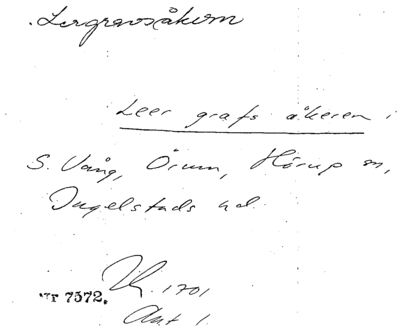 Lergravsåkern
Leer grafs åkeren i
S. Vång, Örum, Hörup sn,
Ingelstads hd.
1701
nr 7572.
Akt 1